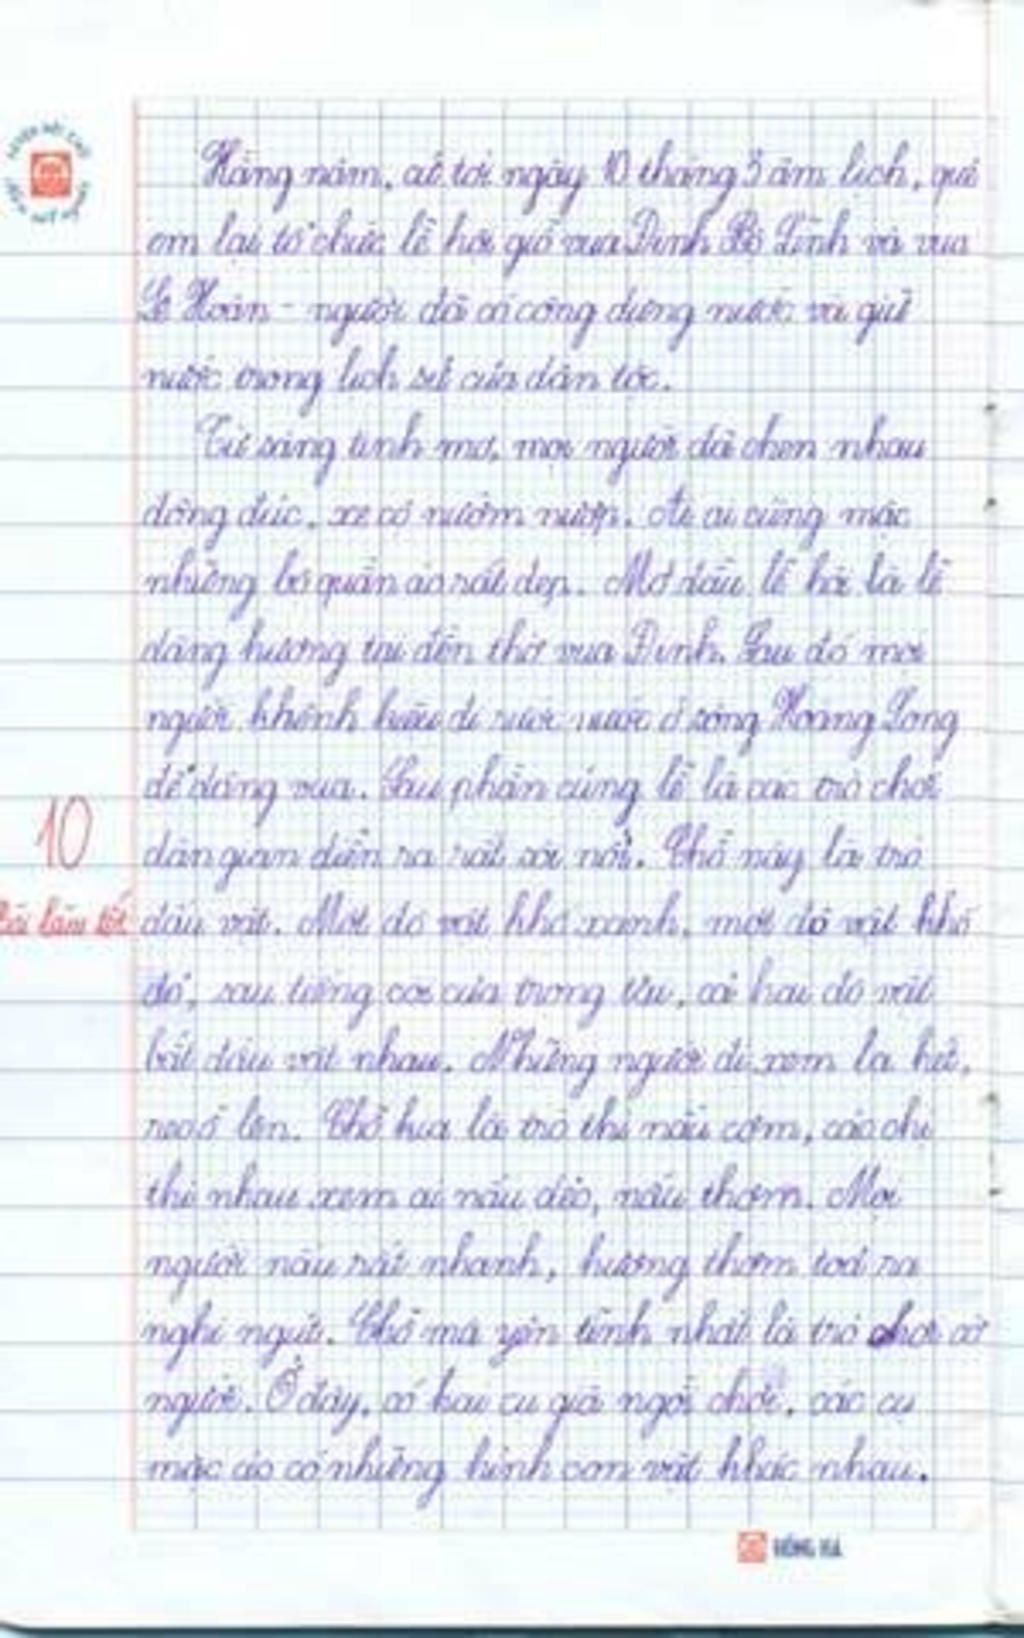 Hằng năm, cứ tới ngày 10 tháng 3 âm lịch, quê
em lại tổ chức lễ hội giỗ vua Đinh Bộ Lĩnh và vua
Lê Hoàn - người đã có công dựng nước và giữ
nước trong lịch sử của dân tộc.
Từ sáng tinh mơ, mọi người đã chen nhau
đông đúc, xe cộ nườm nượp. Ai ai cũng mặc
những bộ quần áo rất đẹp. Mở đầu lễ hội là lễ
dâng hương tại đền thờ vua Đinh. Sau đó mọi
người khênh kiệu đi rước nước ở sông Hoàng Long
để dâng vua. Sau phần cúng lễ là các trò chơi
dân gian diễn ra rất sôi nổi. Chỗ này là trò
10
Bài làm tốt
đấu vật. Một đô vật khố xanh, một đô vật khố
đỏ, sau tiếng còi của trọng tài, cả hai đô vật
bắt đầu vật nhau. Những người đi xem la hét,
reo hò lên. Chỗ kia là trò thi nấu cơm, các chị
thi nhau xem ai nấu dẻo, nấu thơm. Mọi
người nấu rất nhanh, hương thơm toả ra
nghi ngút. Chỗ mà yên tĩnh nhất là trò chơi cờ
người. Ở đây, có hai cụ già ngồi chơi, các cụ
mặc áo có những hình con vật khác nhau.
HỒNG HÀ